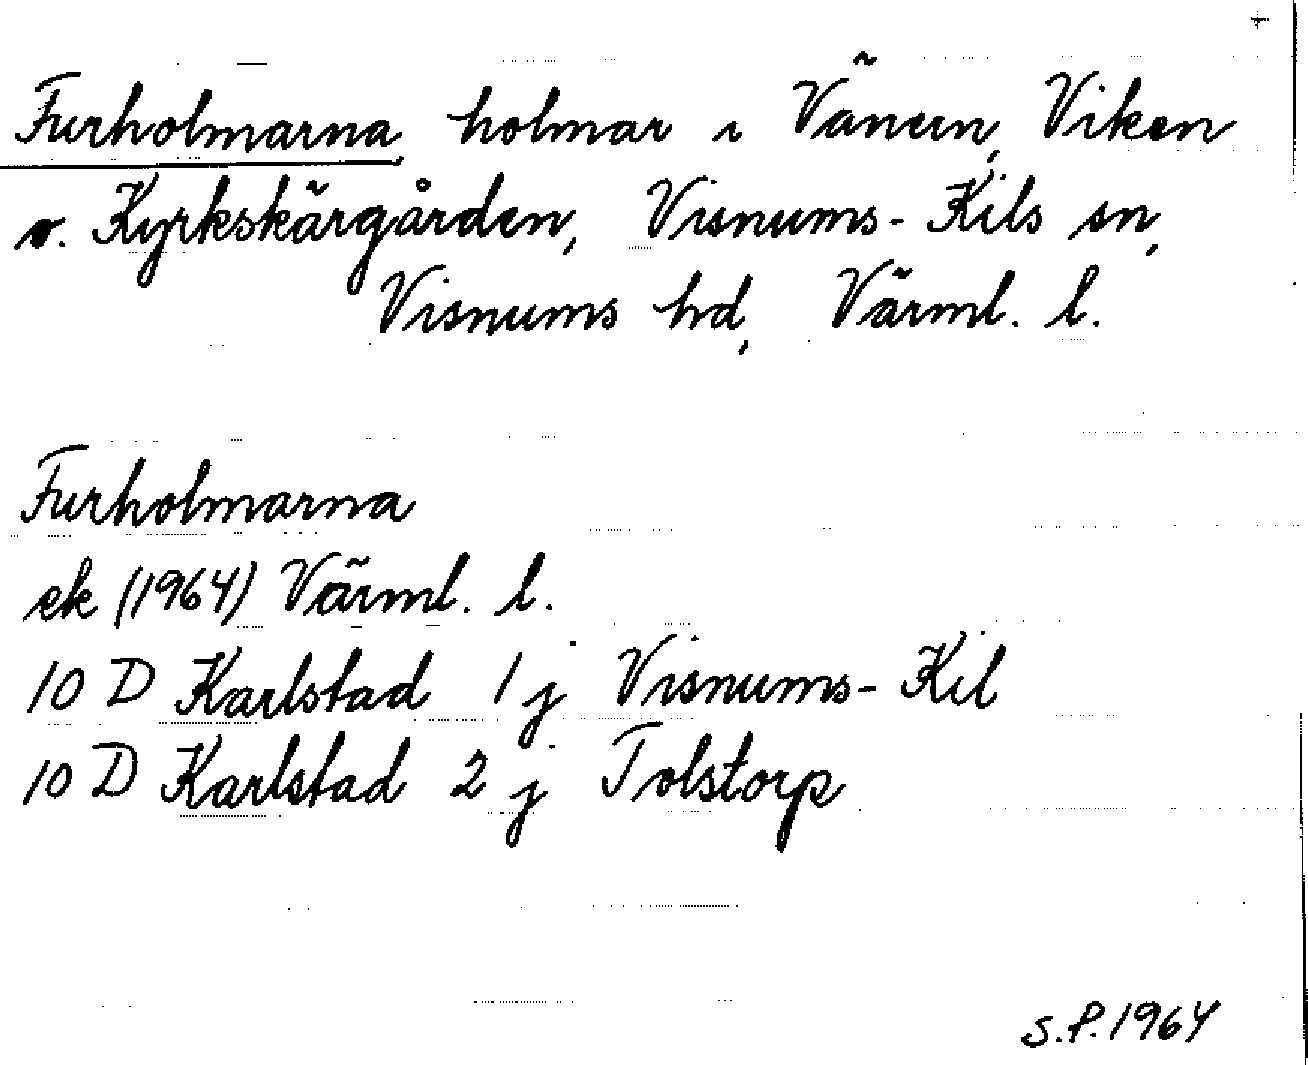 +
Furholmarna, holmar i Vänern, Viken
v. Kyrkskärgården, Visnums-Kils sn,
Visnums hd, Värml. l.
Furholmarna
ek (1964) Värml. l.
10 D Karlstad 1 j Visnums-Kil
10 D Karlstad 2 j Tolstorp
S.P. 1964